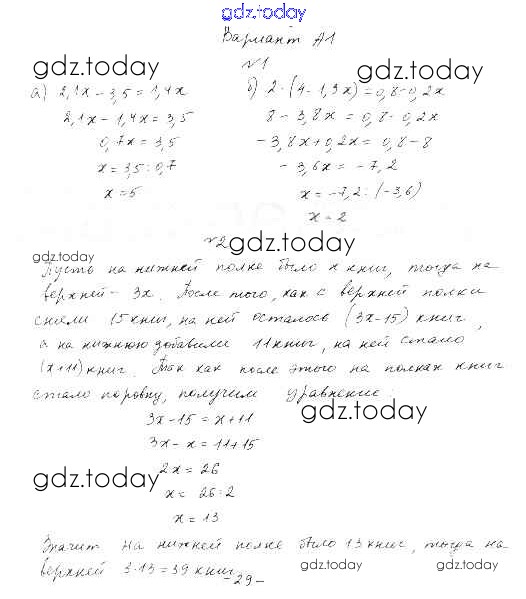 gdz.today
Вариант А1
№1
gdz.today
gdz.today
а) 2,1x - 3,5 = 1,4x
2,1x - 1,4x = 3,5
0,7x = 3,5
x = 3,5 : 0,7
x = 5
б) 2·(4 - 1,9x) = 0,8 - 0,2x
8 - 3,8x = 0,8 - 0,2x
-3,8x + 0,2x = 0,8 - 8
-3,6x = -7,2
x = -7,2 : (-3,6)
x = 2
№2
gdz.today
gdz.today
Пусть на нижней полке было x книг, тогда на
верхней - 3x. После того, как с верхней полки
сняли 15 книг, на ней осталось (3x-15) книг,
а на нижнюю добавили 11 книг, на ней стало
(x+11) книг. Так как после этого на полках книг
стало поровну, получим уравнение:
gdz.today
3x - 15 = x + 11
3x - x = 11 + 15
2x = 26
gdz.today
x = 26 : 2
x = 13
Значит на нижней полке было 13 книг, тогда на
верхней 3·13 = 39 книг
gdz.today
gdz.today
-29-